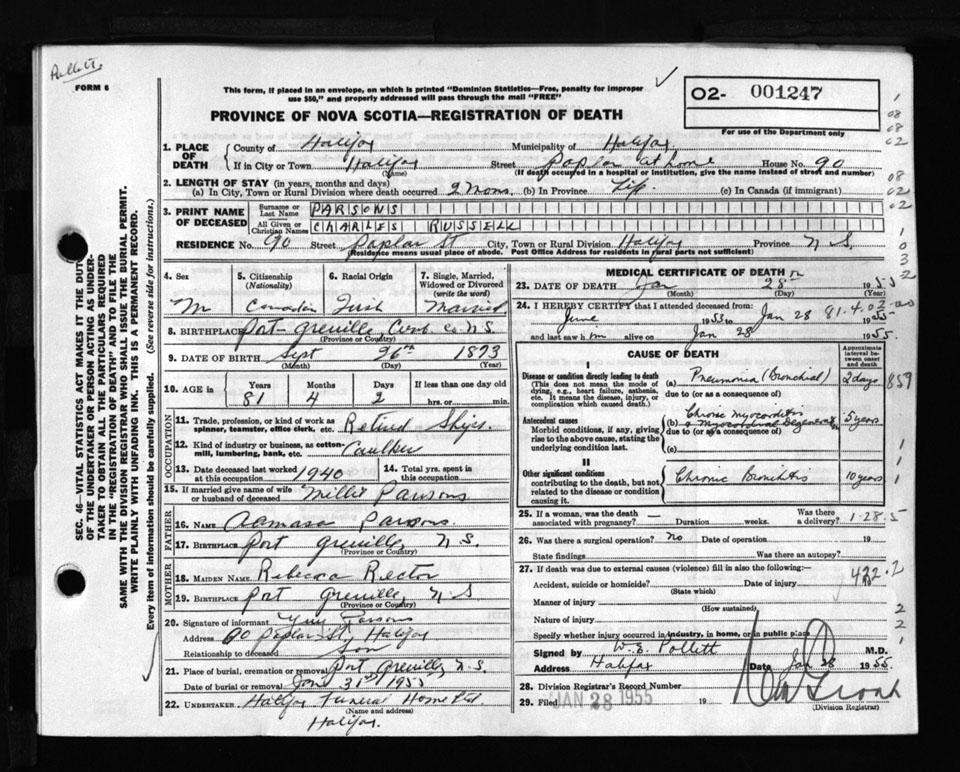 Pollett
FORM 6
This form, if placed in an envelope, on which is printed "Dominion Statistics—Free, penalty for improper
use $50," and properly addressed will pass through the mail "FREE"
O2- 001247
For use of the Department only
PROVINCE OF NOVA SCOTIA—REGISTRATION OF DEATH
1. PLACE OF DEATH
County of Halifax Municipality of Halifax
If in City or Town Halifax Street Poplar at home House No. 90
(Name) (If death occurred in a hospital or institution, give the name instead of street and number)
2. LENGTH OF STAY (in years, months and days)
(a) In City, Town or Rural Division where death occurred 2 Mons. (b) In Province Life. (c) In Canada (if immigrant)
3. PRINT NAME OF DECEASED
Surname or Last Name PARSONS
All Given or Christian Names CHARLES RUSSELL
RESIDENCE No. 90 Street Poplar St City, Town or Rural Division Halifax Province N S
(Residence means usual place of abode. Post Office Address for residents in rural parts not sufficient)
4. Sex M
5. Citizenship (Nationality) Canadian
6. Racial Origin Irish
7. Single, Married, Widowed or Divorced (write the word) Married
8. BIRTHPLACE Port Greville, Cumb. Co N.S.
(Province or Country)
9. DATE OF BIRTH Sept 26th 1873
(Month) (Day) (Year)
10. AGE in Years 81 Months 4 Days 2 If less than one day old
hrs. or min.
OCCUPATION
11. Trade, profession, or kind of work as
spinner, teamster, office clerk, etc. Retired Ships.
12. Kind of industry or business, as cotton-
mill, lumbering, bank, etc. Caulker
13. Date deceased last worked at this occupation 1940 14. Total yrs. spent in this occupation
15. If married give name of wife or husband of deceased Millie Parsons
FATHER
16. NAME Parsons.
17. BIRTHPLACE Port Greville, N. S.
(Province or Country)
MOTHER
18. MAIDEN NAME Rebecca Rector
19. BIRTHPLACE Port Greville, N. S
(Province or Country)
20. Signature of informant Parsons
Address 90 Poplar St, Halifax
Relationship to deceased Son
21. Place of burial, cremation or removal Port Greville, N.S.
Date of burial or removal Jan 31st 1955
22. UNDERTAKER Halifax Funeral Home Ltd.
(Name and address)
Halifax.
MEDICAL CERTIFICATE OF DEATH
23. DATE OF DEATH Jan 28th 1955
(Month) (Day) (Year)
24. I HEREBY CERTIFY that I attended deceased from:
June 1953 to Jan 28 1955
and last saw him alive on Jan 28 1955.
CAUSE OF DEATH
Approximate interval between onset and death
I
Disease or condition directly leading to death
(This does not mean the mode of dying, e.g., heart failure, asthenia, etc. It means the disease, injury, or complication which caused death.)
(a) Pneumonia (Bronchial) 2 days
due to (or as a consequence of)
Antecedent causes
Morbid conditions, if any, giving rise to the above cause, stating the underlying condition last.
(b) Chronic Myocarditis & Myocardial Degeneration 5 years
due to (or as a consequence of)
(c)
II
Other significant conditions
contributing to the death, but not related to the disease or condition causing it.
Chronic Bronchitis 10 years
25. If a woman, was the death associated with pregnancy? — Duration weeks. Was there a delivery?
26. Was there a surgical operation? No Date of operation 19
State findings Was there an autopsy?
27. If death was due to external causes (violence) fill in also the following:—
Accident, suicide or homicide? Date of injury 19
(State which)
Manner of injury
(How sustained)
Nature of injury
Specify whether injury occurred in industry, in home, or in public place
Signed by W. E. Pollett M.D.
Address Halifax Date Jan 28 1955.
28. Division Registrar's Record Number
29. Filed JAN 28 1955 19
(Division Registrar)
SEC. 46—VITAL STATISTICS ACT MAKES IT THE DUTY
OF THE UNDERTAKER OR PERSON ACTING AS UNDER-
TAKER TO OBTAIN ALL THE PARTICULARS REQUIRED
IN THE "REGISTRATION OF DEATH" AND TO FILE THE
SAME WITH THE DIVISION REGISTRAR WHO SHALL ISSUE THE BURIAL PERMIT.
WRITE PLAINLY WITH UNFADING INK. THIS IS A PERMANENT RECORD.
Every item of information should be carefully supplied. (See reverse side for instructions.)
1
08
08
02
08
02
02
1
0
3
2
81.4.02
859
1
1
1
1-28-5
422.2
2
2
1